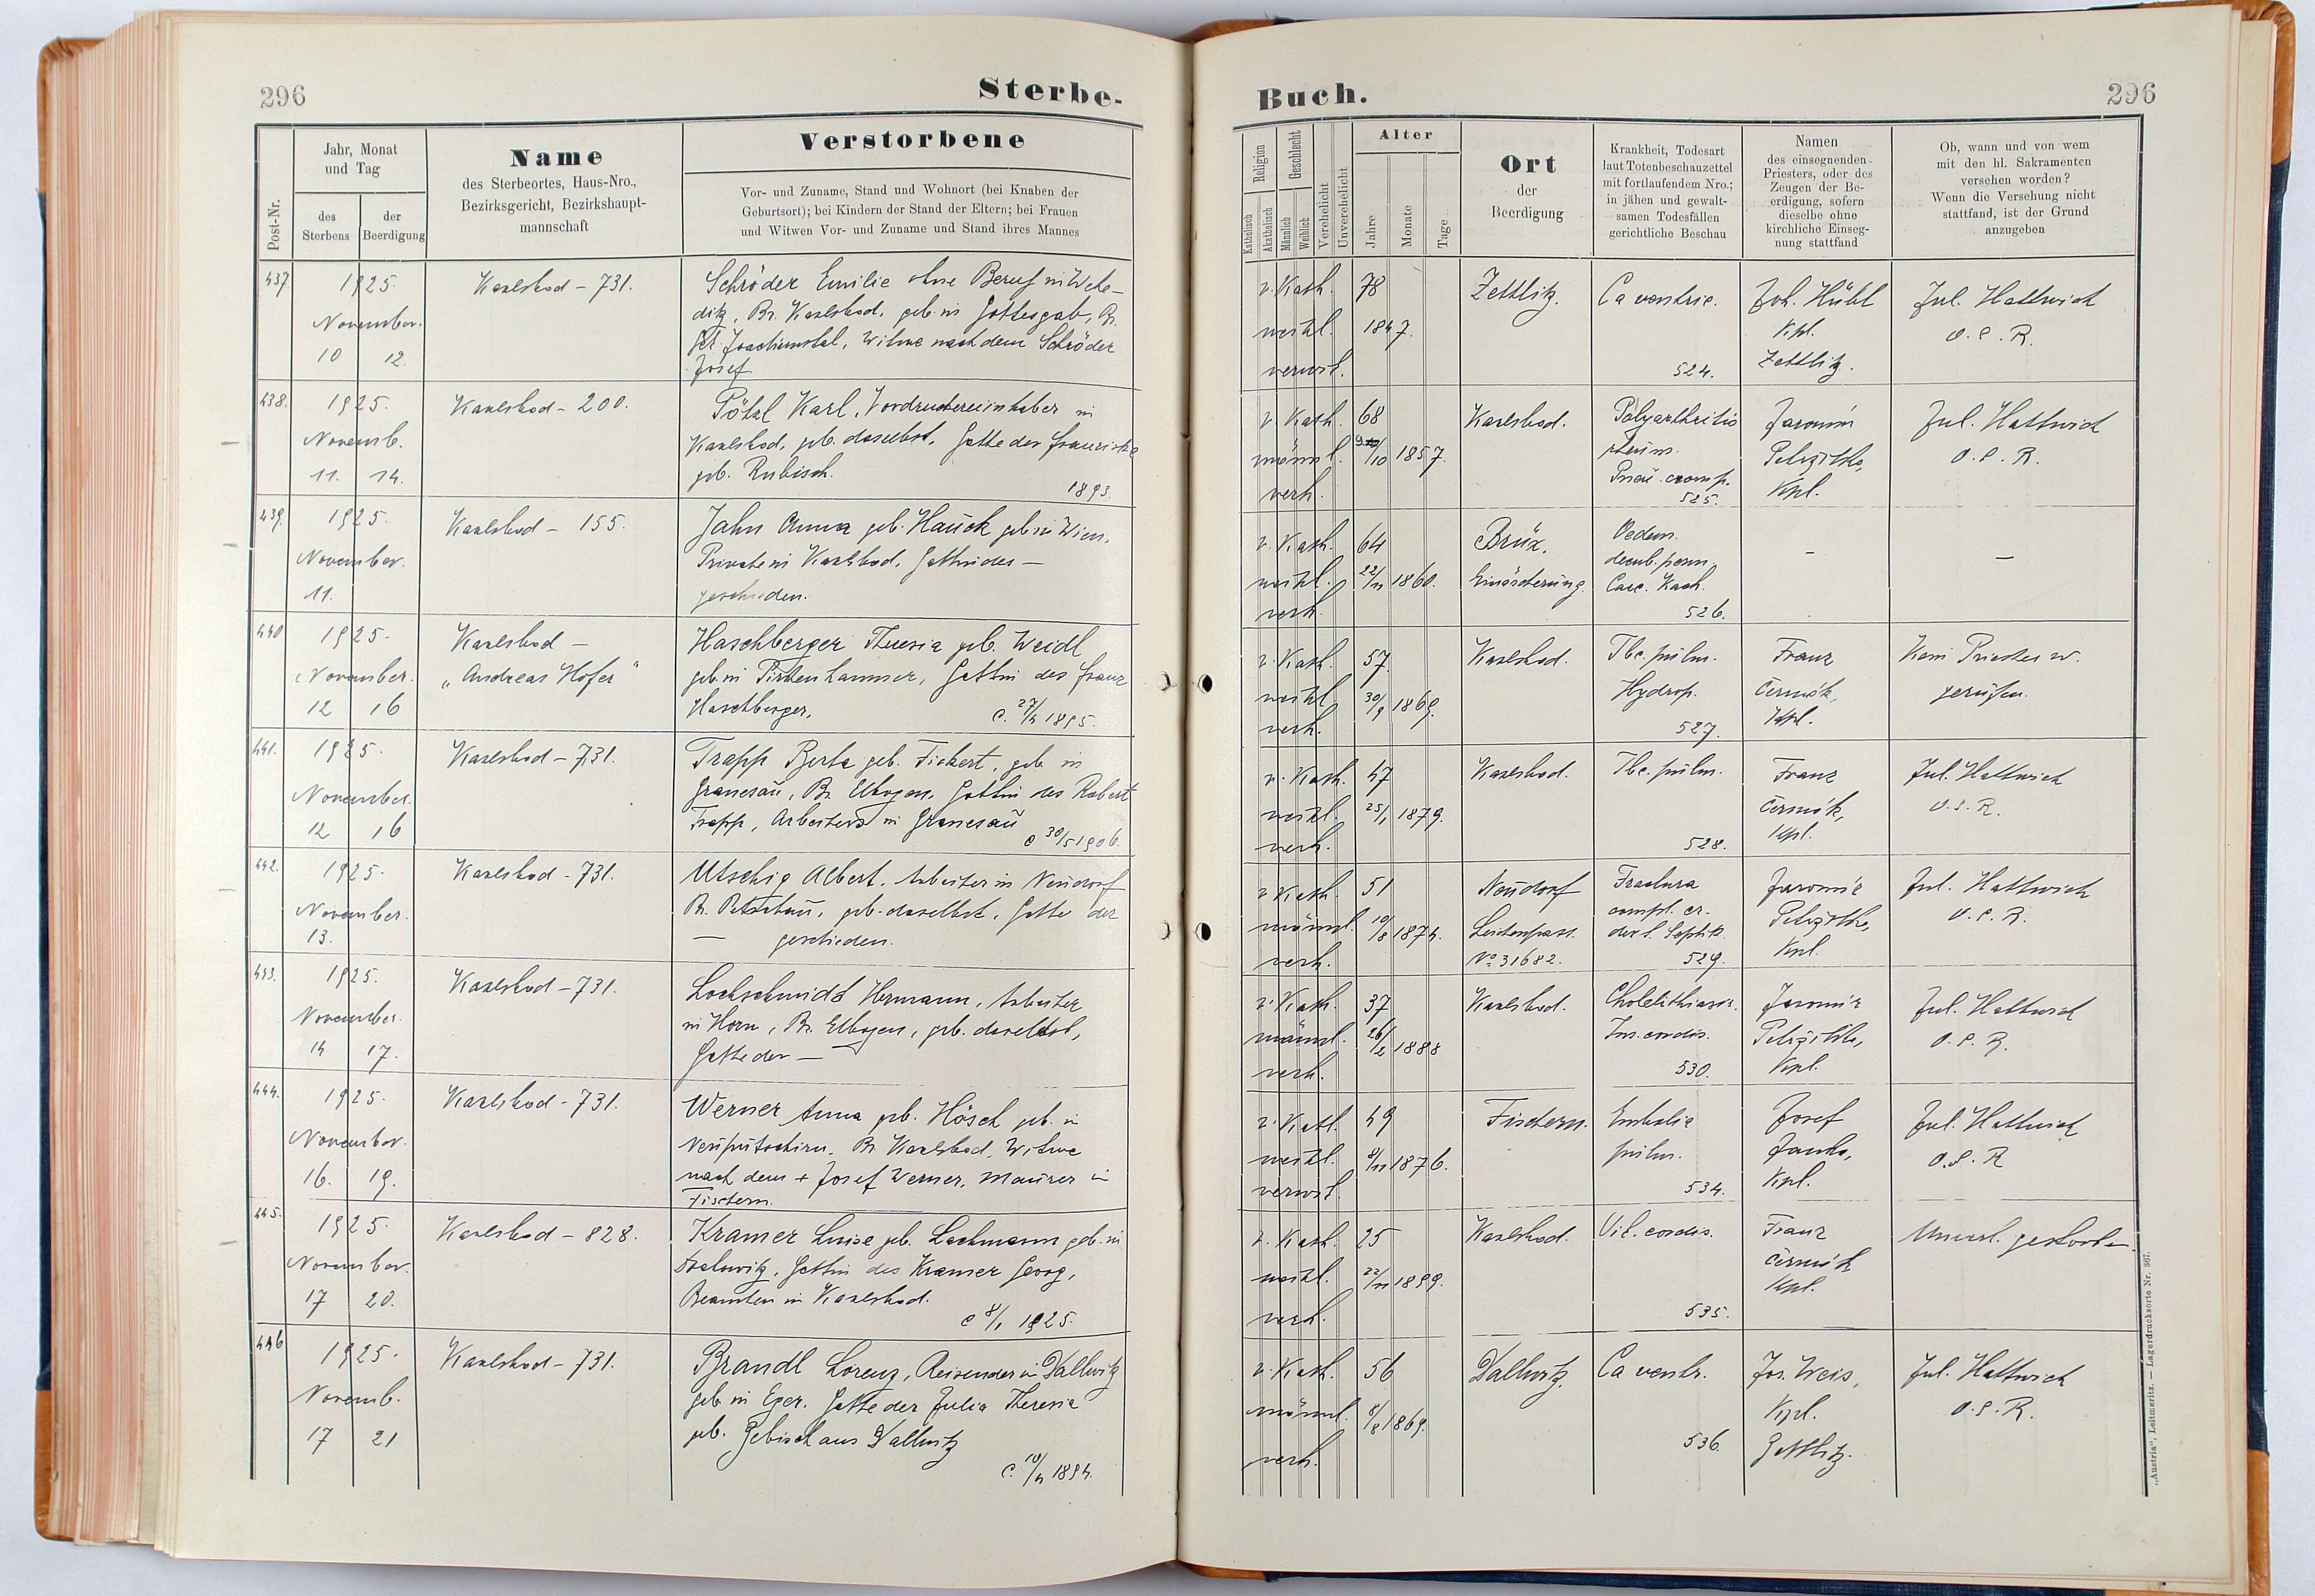 296
Sterbe-
Post-Nr.
Jahr, Monat
und Tag
des
Sterbens
der
Beerdigung
Name
des Sterbeortes, Haus-Nro.,
Bezirksgericht, Bezirkshaupt-
mannschaft
Verstorbene
Vor- und Zuname, Stand und Wohnort (bei Knaben der
Geburtsort); bei Kindern der Stand der Eltern; bei Frauen
und Witwen Vor- und Zuname und Stand ihres Mannes
437
1925.
November.
10 12.
Karlsbad - 731.
Schröder Emilie ohne Beruf in Wehe-
ditz, Bz. Karlsbad, geb. in Gottesgab, Bz.
St. Joachimstal, Witwe nach dem Schröder
Josef.
438.
1925.
Novemb.
11. 14.
Karlsbad - 200.
Pötzl Karl, Vordruckereiinhaber in
Karlsbad, geb. daselbst, Gatte der Franziska
geb. Rubisch.
1893.
439.
1925.
November.
11.
Karlsbad - 155.
Jahn Anna geb. Hauck geb. in Wien.
Private in Karlsbad, Gattin des —
geschieden.
440
1925.
November.
12 16
Karlsbad —
„Andreas Hofer"
Haschberger Theresia geb. Weidl
geb. in Pirkenhammer, Gattin des Franz
Haschberger.
C. 27/4 1895.
441.
1925.
November.
12 16
Karlsbad - 731.
Trapp Berta geb. Fickert, geb. in
Granesau, Bz. Elbogen, Gattin des Robert
Trapp, Arbeiters in Granesau
C 30/5 1906.
442.
1925.
November.
13.
Karlsbad - 731.
Utschig Albert, Arbeiter in Neudorf
Bz. Petschau, geb. daselbst, Gatte der
— geschieden.
443.
1925.
November.
14 17.
Karlsbad - 731.
Lochschmidt Hermann, Arbeiter
in Horn, Bz. Elbogen, geb. daselbst,
Gatte der —
444.
1925.
November.
16. 19.
Karlsbad - 731.
Werner Anna geb. Hösch geb. in
Neuputschirn, Bz. Karlsbad, Witwe
nach dem + Josef Werner, Maurer in
Fischern.
445.
1925.
November.
17 20.
Karlsbad - 828.
Kramer Luise geb. Lachmann geb. in
Gattin des Kramer Georg,
Beamten in Karlsbad.
C 8/1 1925.
446
1925.
Novemb.
17 21
Karlsbad - 731.
Brandl Lorenz, Reisender in Dallwitz
geb. in Eger. Gatte der Julia Theresia
geb. Gebisch aus Dallwitz
C. 10/4 1894.
Buch.
296
Religion
Katholisch
Akatholisch
Geschlecht
Männlich
Weiblich
Verehelicht
Unverehelicht
Alter
Jahre
Monate
Tage
Ort
der
Beerdigung
Krankheit, Todesart
laut Totenbeschauzettel
mit fortlaufendem Nro.;
in jähen und gewalt-
samen Todesfällen
gerichtliche Beschau
Namen
des einsegnenden
Priesters, oder des
Zeugen der Be-
erdigung, sofern
dieselbe ohne
kirchliche Einseg-
nung stattfand
Ob, wann und von wem
mit den hl. Sakramenten
versehen worden?
Wenn die Versehung nicht
stattfand, ist der Grund
anzugeben
r. Kath. 78
weibl. 1847.
verwit.
Zettlitz.
Ca ventric.
524.
Joh. Hübl
Kpl.
Zettlitz.
Jul. Hattwich
O. P. R.
r. Kath. 68
männl. /10 1857.
verh.
Karlsbad.
Polyarthritis
rheum.
525.
Jaromir
Kpl.
Jul. Hattwich
O. P. R.
r. Kath. 64
weibl. 22/11 1860.
verh.
Brüx,
Einäscherung.
Oedem.
Carc. Kach.
526.
—
—
r. Kath. 57.
weibl. 30/9 1869.
verh.
Karlsbad.
Tbc. pulm.
Hydrop.
527.
Franz
Čermák,
Kpl.
Kein Priester w.
gerufen.
r. Kath. 47
weibl. 25/1 1879.
verh.
Karlsbad.
Tbc. pulm.
528.
Franz
Čermák,
Kpl.
Jul. Hattwich
O. P. R.
r. Kath. 51
männl. 10/8 1874.
verh.
Neudorf
Leichenpass
No 31682.
Fractura
compl. cr.
529.
Jaromir
Kpl.
Jul. Hattwich
O. P. R.
r. Kath. 37
männl. 26/2 1888
verh.
Karlsbad.
Cholelithiasis.
Ins. cordis.
530.
Jaromir
Kpl.
Jul. Hattwich
O. P. R.
r. Kath. 49
weibl. 8/11 1876.
verwit.
Fischern.
Embolia
pulm.
534.
Josef
Janka,
Kpl.
Jul. Hattwich
O. P. R
r. Kath. 25
weibl. 22/11 1899.
verh.
Karlsbad.
Vit. cordis.
535.
Franz
Čermák
Kpl.
gestorben.
r. Kath. 56
männl. 8/8 1869.
verh.
Dallwitz.
Ca ventr.
536.
Jos. Weis,
Kpl.
Zettlitz.
Jul. Hattwich
O. P. R.
„Austria", Leitmeritz. — Lagerdrucksorte Nr. 867.